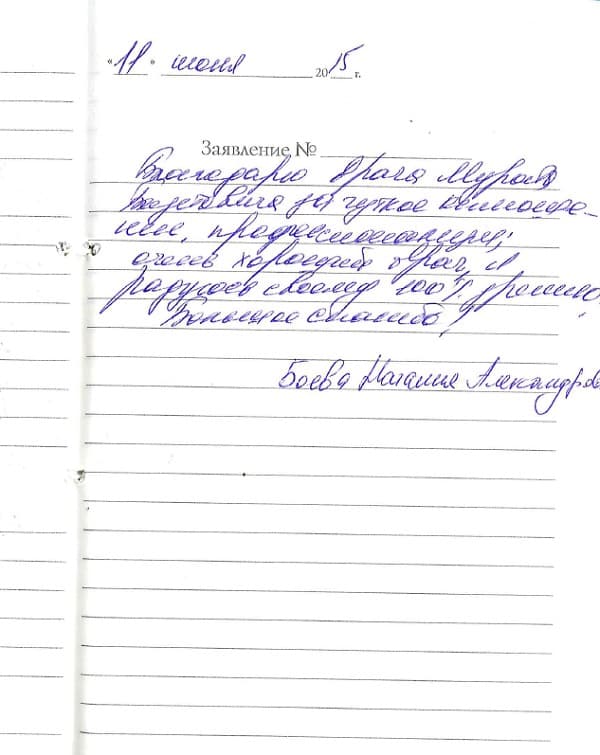 "11" июня 2015 г.
Заявление №
Благодарю врача Мурата
за чуткое внимание-
ние, профессионализм,
очень хороший врач, и
радуюсь своему 100% зрению.
Большое спасибо!
Боева Наталия Александров